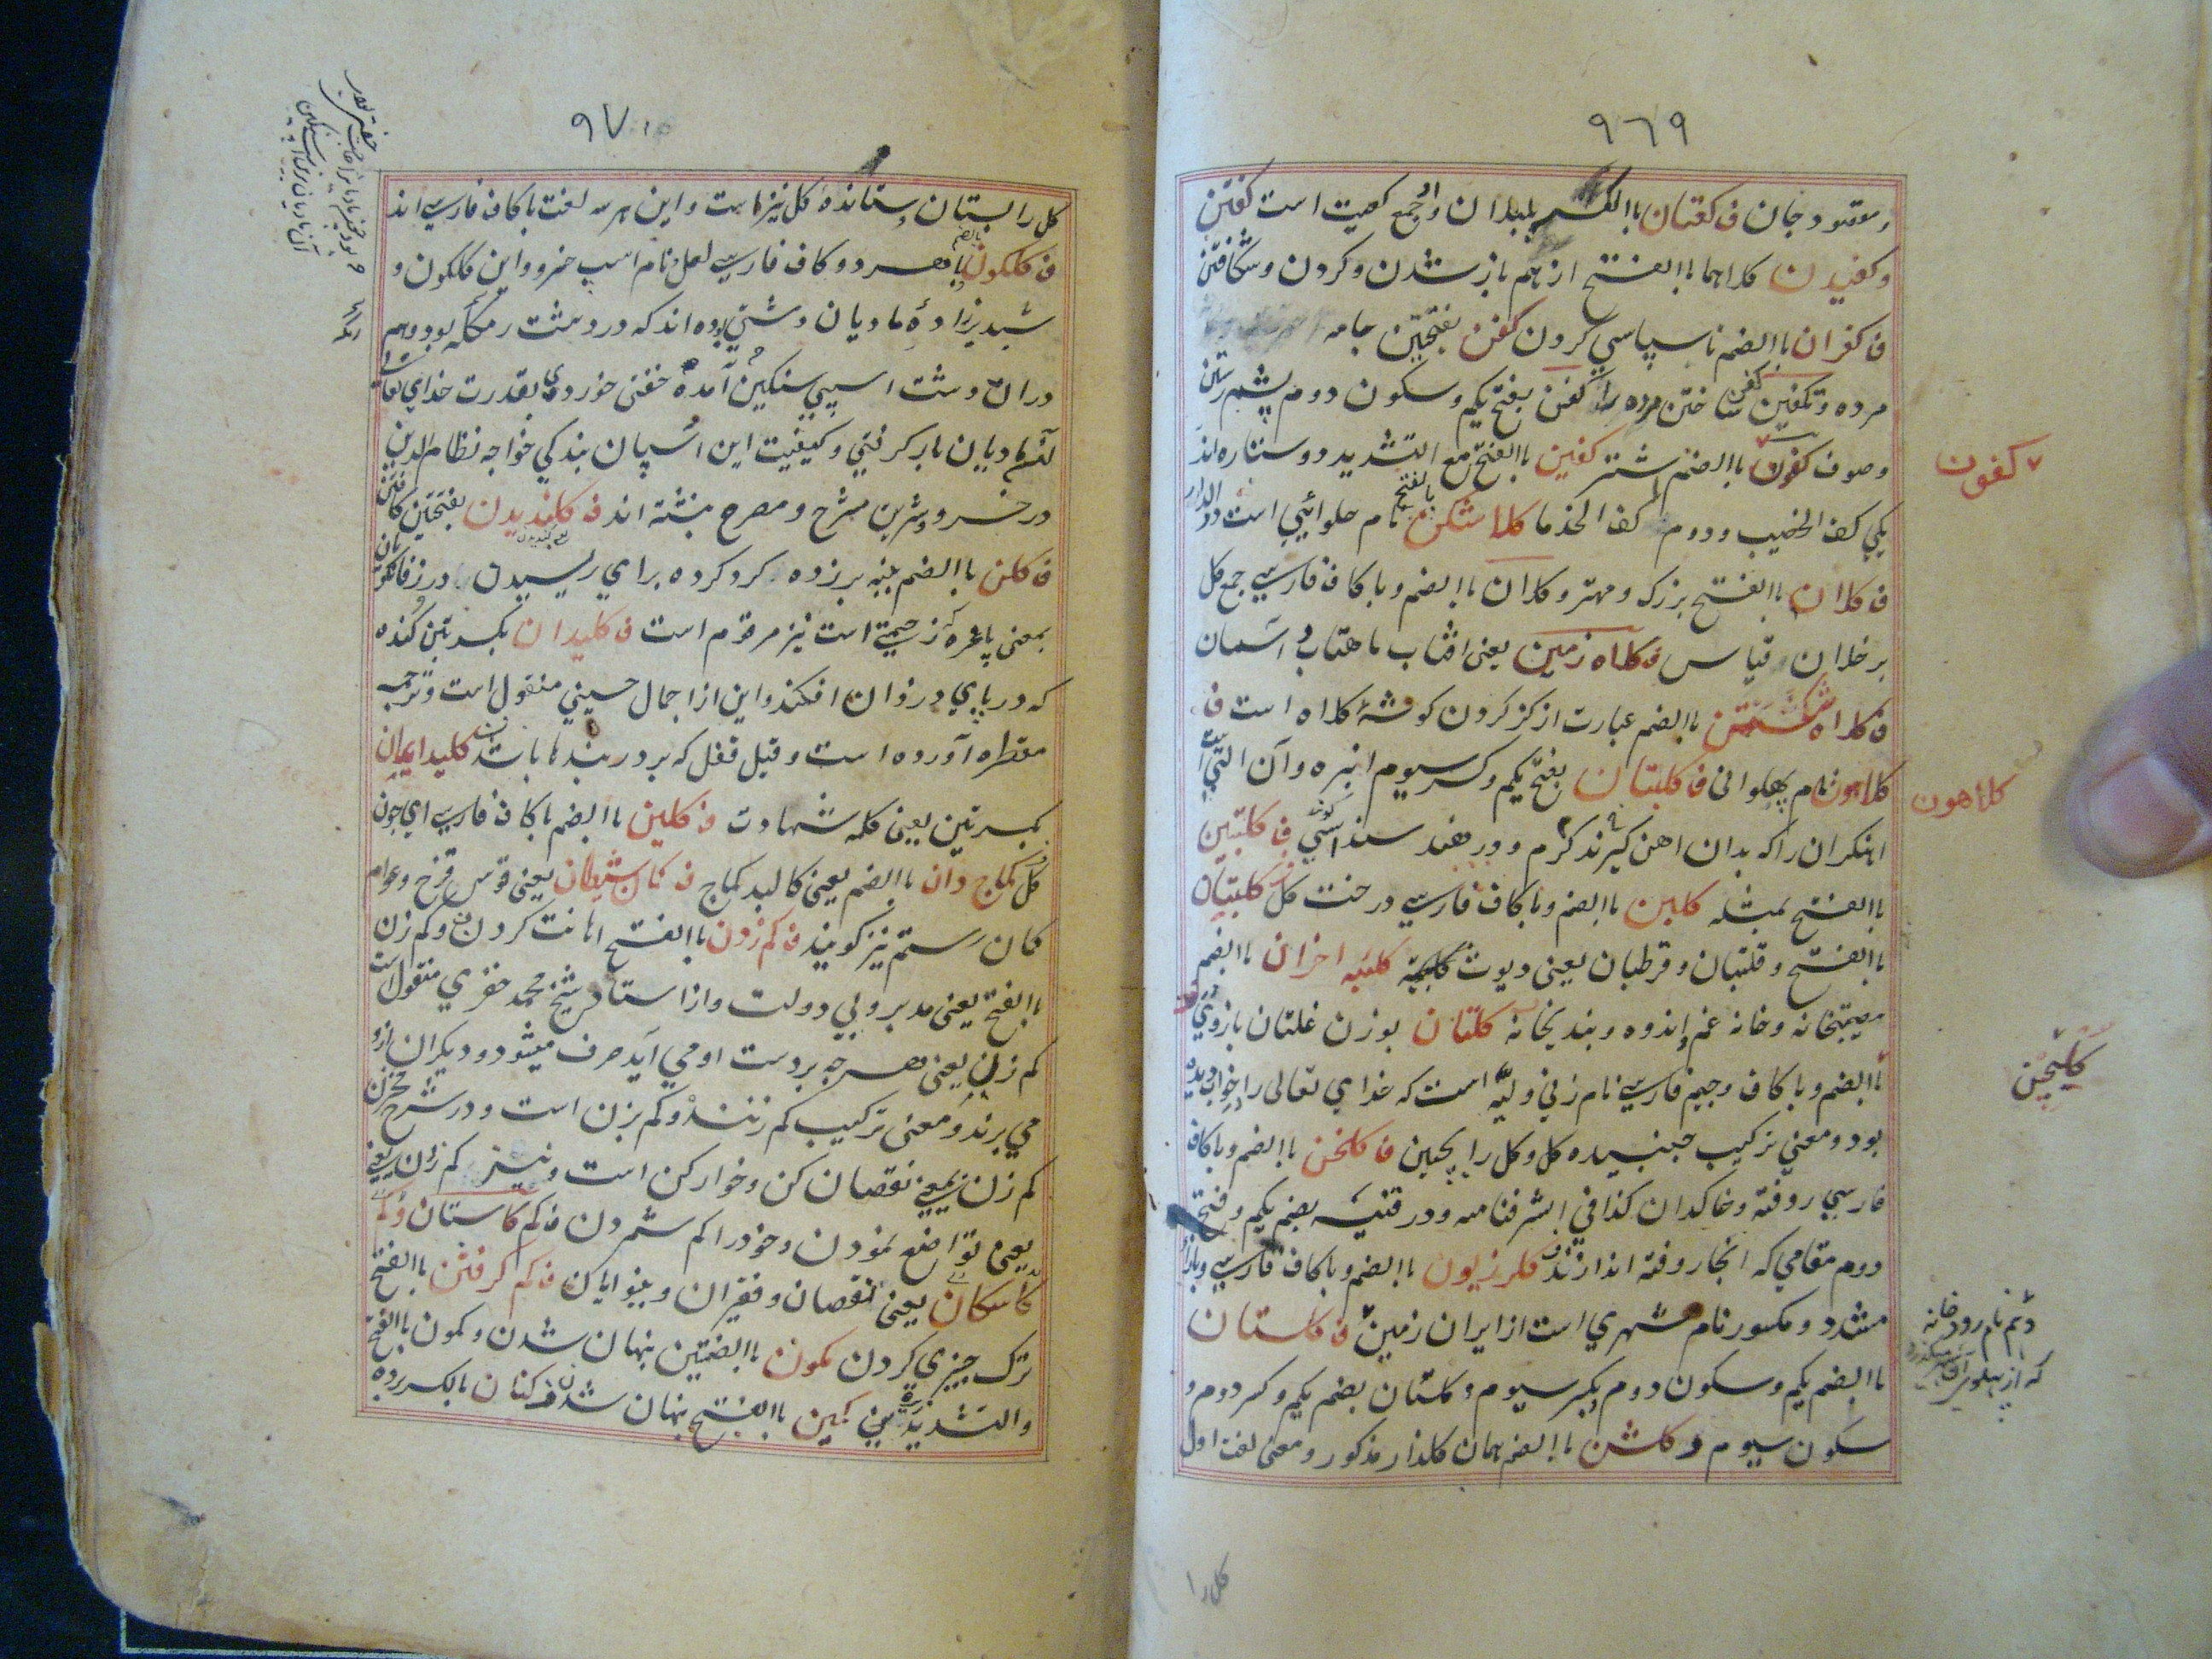 ٩٦٩
و مقصود جان ف کفتان باالکسر بلبدان و او جمع کفیت است کفتن
و کفیدن کلاهما باالفتح از هم باز شدن و کردن و شکافتن
ف کفران باالضم ناسپاسی کردن کفن بفتحتین جامه
مرده و تکفین کفن ساختن مرده را کفن بفتح یکم و سکون دوم پشم رشتن
وصوف کفون باالضم شتر کفین باالفتح مع التشدید دو ستاره اند
یکی کف الخضیب و دوم کف الجذما کلاشکن بالفتح نام حلوائیی است
ف کلان باالفتح بزرک و مهتر و کلان باالضم و با کاف فارسی جمع کل
بر خلاف قیاس ف کلاه زمین یعنی افتاب ماهتاب و اسمان
ف کلاه شکستن باالضم عبارت از کز کردن کوشۀ کلاه است ف
کلاهون نام پهلوانی ف کلبتان بفتح یکم و کسر سیوم انبره و آن التی است
اهنکران را که بدان اهن کیرند کرم و در هند سنداسی کویند ف کلبتین
باالفتح بمثله کلبن باالضم و با کاف فارسی درخت کل کلبتان
باالفتح و قلتبان و قرطبان یعنی دیوث کلبه کلبه احزان باالضم
مصیبتخانه و خانه غم و اندوه و بندیخانه کلتان بوزن غلتان
باالضم و با کاف و جیم فارسی نام زنی ولیّه است که خدای تعالی را بخواب دیده
بود و معنی ترکیب چینیده کل و کل را بچین ف کلخن باالضم و با کاف
فارسی روفته و خاکدان کذا فی الشرفنامه و در قنیه بضم یکم و فتح
دوم مقامی که انجا روفته اندازند ف کلرزیون باالضم و با کاف فارسی و با زا
مشدد و مکسور نام شهری است از ایران زمین ف کلستان
باالضم یکم و سکون دوم و بکسر سیوم و کلستان بضم یکم و کسر دوم و
سکون سیوم و کلشن باالضم همان کلزار مذکور و معنی لغت اول
کفون
کلاهون
کلچین
دیم نام رودخانه
که از پهلوی
کل را
٩٧٠
کل را بستان و ستانندۀ کل نیز است و این هر سه لغت با کاف فارسی اند
ف کلکون بالضم با هر دو کاف فارسی لعل نام اسپ خسرو و این کلکون و
شبدیز زادۀ مادیان دشتی بوده اند که در دشت رمکله بود و هم
دران دشت اسپی سنکین آمده خفتی خوردی بقدرت خدای تعالی
آن مادیان بار کرفتی و کیفیت این اسپان بندکی خواجه نظام الدین
در خسرو و شیرین مشرح و مصرح نبشته اند ف کلندیدن بفتحتین کافتن
ف کلن باالضم پنبه بر زده کرد کرده برای ریسیدن و در زفان
بمعنی پاغره که زحمتی است نیز مرقوم است ف کلیدان بکسرتین کنده
که در پای درزوان افکنند و این از اجمال حسینی منقول است و ترجمه
مقطره آورده است و قیل قفل که بر دربندها باشد کلید ایمان
بکسرتین یعنی کلمه شهادت ف کلین باالضم با کاف فارسی ای چون
کل کماج دان باالضم یعنی کالبد کماج ف کمان شیطان یعنی قوس قزح و عوام
کمان رستم نیز کویند ف کم زدن باالفتح اهانت کردن و کم زن
باالفتح یعنی مدبر و بی دولت و از استاد شیخ محمد خضری منقول است
کم زن یعنی هرچه بر دست او می آید صرف میشود و دیکران ازو
می برند و معنی ترکیب کم زننده و کم بزن است و در شرح مخزن
کم زن بمعنی نقصان کن و خوار کن است و نیز کم زدن یعنی
یعنی تواضع نمودن و خود را کم شمردن ف کم کاستان و کم
کاسکان یعنی نقصان و فقیران و بینوایان ف کم کرفتن باالفتح
ترک چیزی کردن کمون باالضمتین پنهان شدن و کمون باالفتح
والتشدید زیره کمین باالفتح پنهان شدن ف کنان بالکسر پرده